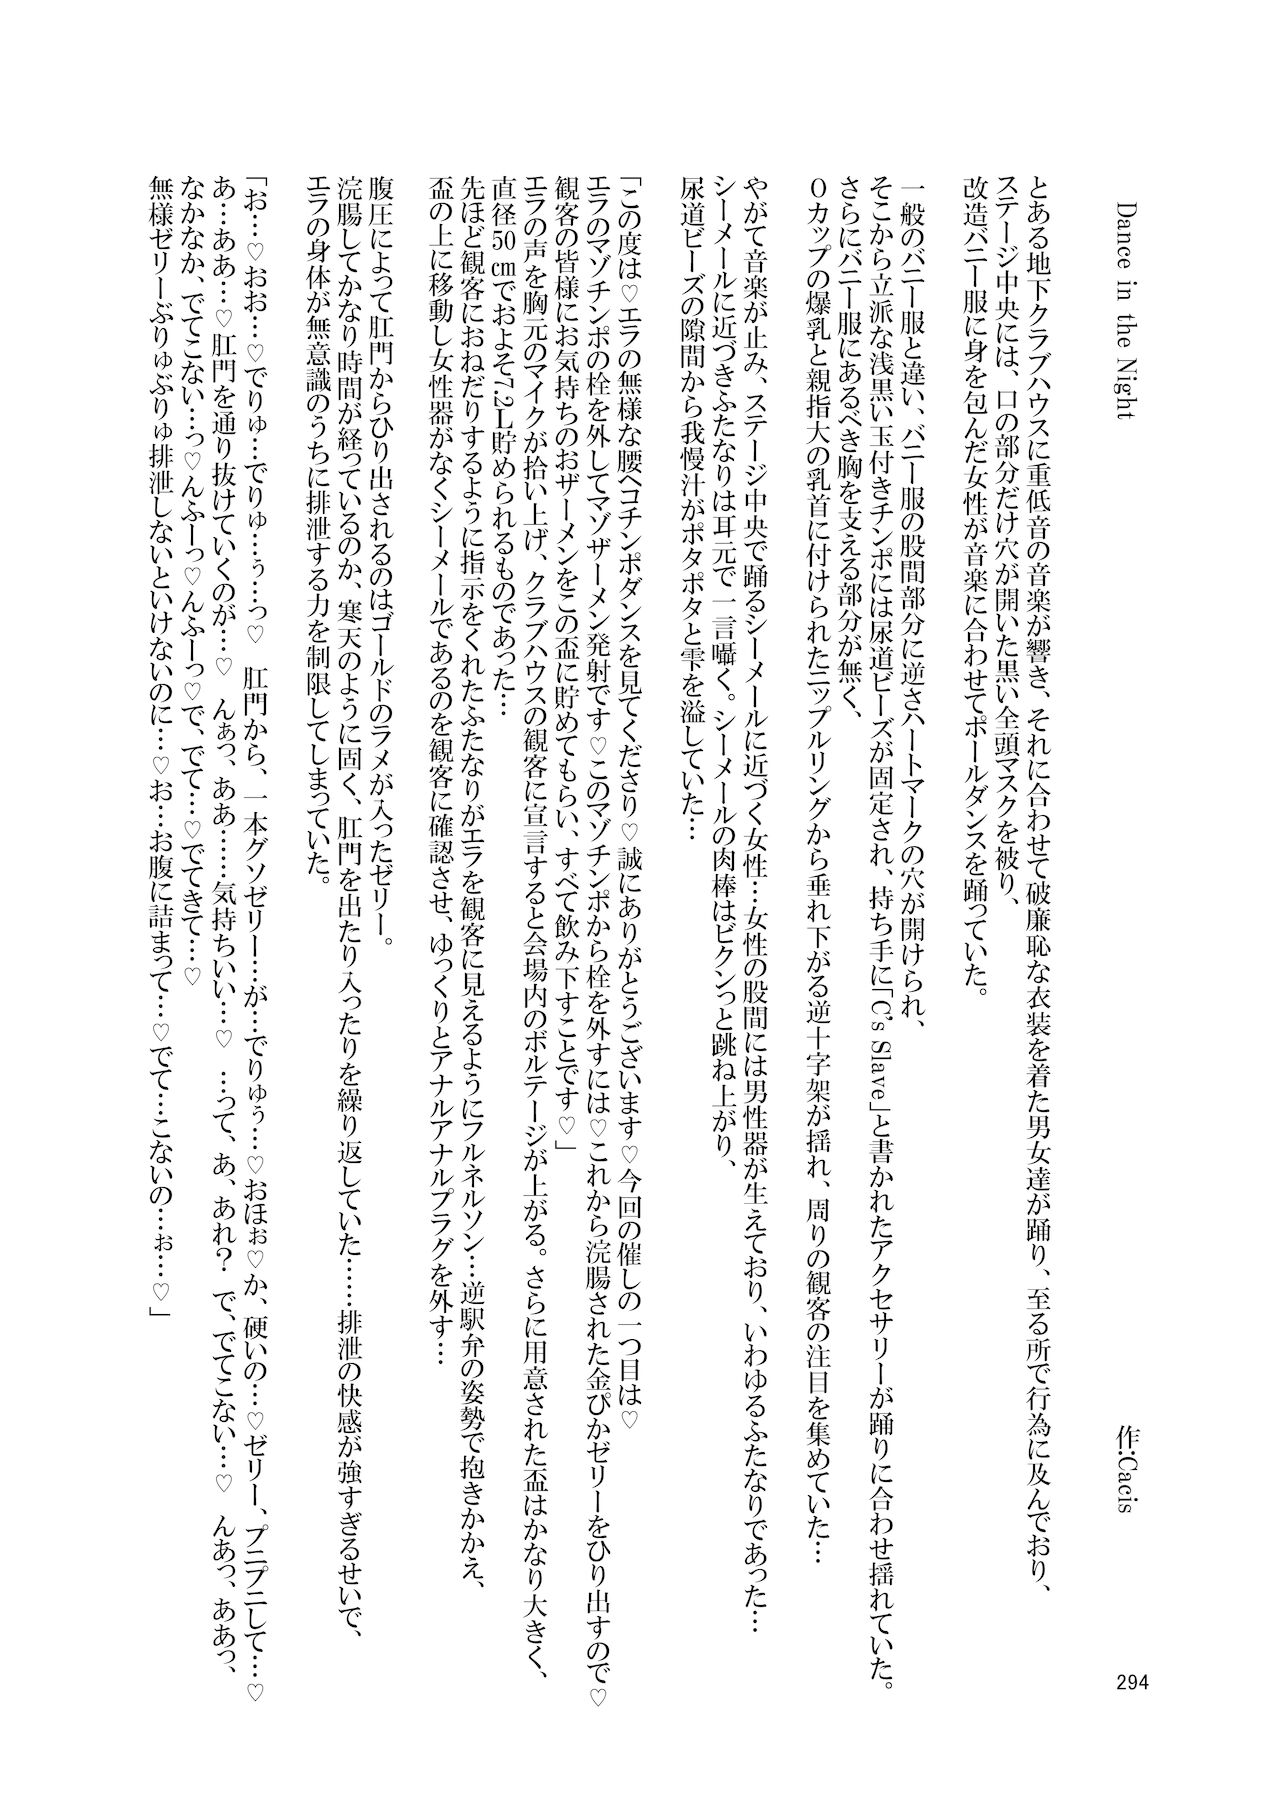 Dance in the Night
作:Cacis
とある地下クラブハウスに重低音の音楽が響き、それに合わせて破廉恥な衣装を着た男女達が踊り、至る所で行為に及んでおり、
ステージ中央には、口の部分だけ穴が開いた黒い全頭マスクを被り、
改造バニー服に身を包んだ女性が音楽に合わせてポールダンスを踊っていた。
一般のバニー服と違い、バニー服の股間部分に逆さハートマークの穴が開けられ、
そこから立派な浅黒い玉付きチンポには尿道ビーズが固定され、持ち手に「C's Slave」と書かれたアクセサリーが踊りに合わせ揺れていた。
さらにバニー服にあるべき胸を支える部分が無く、
Oカップの爆乳と親指大の乳首に付けられたニップルリングから垂れ下がる逆十字架が揺れ、周りの観客の注目を集めていた…
やがて音楽が止み、ステージ中央で踊るシーメールに近づく女性…女性の股間には男性器が生えており、いわゆるふたなりであった…
シーメールに近づきふたなりは耳元で一言囁く。シーメールの肉棒はビクンっと跳ね上がり、
尿道ビーズの隙間から我慢汁がポタポタと雫を溢していた…
「この度は♡エラの無様な腰ヘコチンポダンスを見てくださり♡誠にありがとうございます♡今回の催しの一つ目は♡
エラのマゾチンポの栓を外してマゾザーメン発射です♡このマゾチンポから栓を外すには♡これから浣腸された金ぴかゼリーをひり出すので♡
観客の皆様にお気持ちのおザーメンをこの盃に貯めてもらい、すべて飲み下すことです♡」
エラの声を胸元のマイクが拾い上げ、クラブハウスの観客に宣言すると会場内のボルテージが上がる。さらに用意された盃はかなり大きく、
直径50㎝でおよそ7.2L貯められるものであった…
先ほど観客におねだりするように指示をくれたふたなりがエラを観客に見えるようにフルネルソン…逆駅弁の姿勢で抱きかかえ、
盃の上に移動し女性器がなくシーメールであるのを観客に確認させ、ゆっくりとアナルアナルプラグを外す…
腹圧によって肛門からひり出されるのはゴールドのラメが入ったゼリー。
浣腸してかなり時間が経っているのか、寒天のように固く、肛門を出たり入ったりを繰り返していた……排泄の快感が強すぎるせいで、
エラの身体が無意識のうちに排泄する力を制限してしまっていた。
「お…♡おお…♡でりゅ…でりゅ…ぅ…っ♡　肛門から、一本グソゼリー…が…でりゅぅ…♡おほぉ♡か、硬いの…♡ゼリー、プニプニして…♡
あ…ああ…♡肛門を通り抜けていくのが…♡　んぁっ、ああ……気持ちいい…♡　…って、あ、あれ？　で、でてこない…♡　んあっ、ああっ、
なかなか、でてこない…っ♡んふーっ♡んふーっ♡で、でて…♡でてきて…♡
無様ゼリーぶりゅぶりゅ排泄しないといけないのに…♡お…お腹に詰まって…♡でて…こないの…ぉ…♡」
294